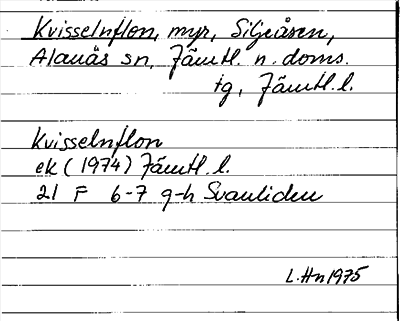 Kvisselnflon, myr, Siljeåsen,
Alanäs sn, Jämtl. n. doms.
tg, Jämtl. l.
Kvisselnflon
ek (1974) Jämtl. l.
21 F 6-7 g-h Svanliden
L. Hn 1975